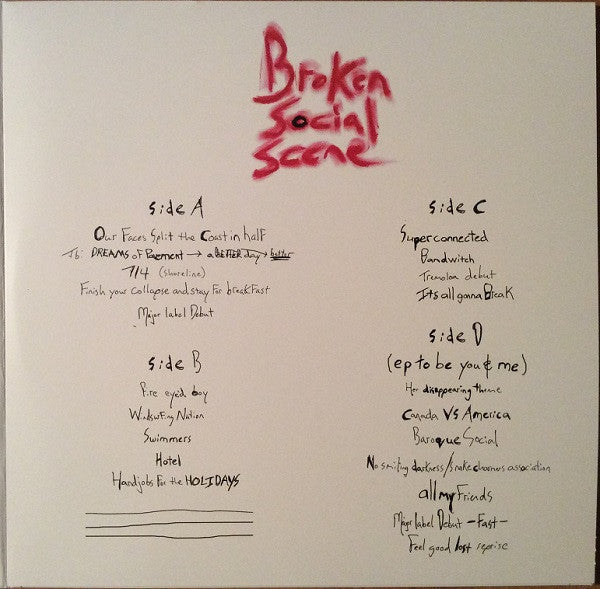 Broken
Social
Scene
Side A
Our Faces Split the Coast in half
Ibi DREAMS of Pavement → a BETTER day → better
7/4 (shoreline)
Finish your collapse and stay For breakFast
Major label Debut
Side B
Fire eyed boy
Windsurfing Nation
Swimmers
Hotel
Handjobs For the HOLIDAYS
Side C
Superconnected
Bandwitch
Tremoloa debut
It's all gonna Break
Side D
(ep to be you & me)
Her disappearing theme
Canada VS America
Baroque Social
No smiling darkness/snake charmers association
all my Friends
Major label Debut -Fast-
Feel good lost reprise